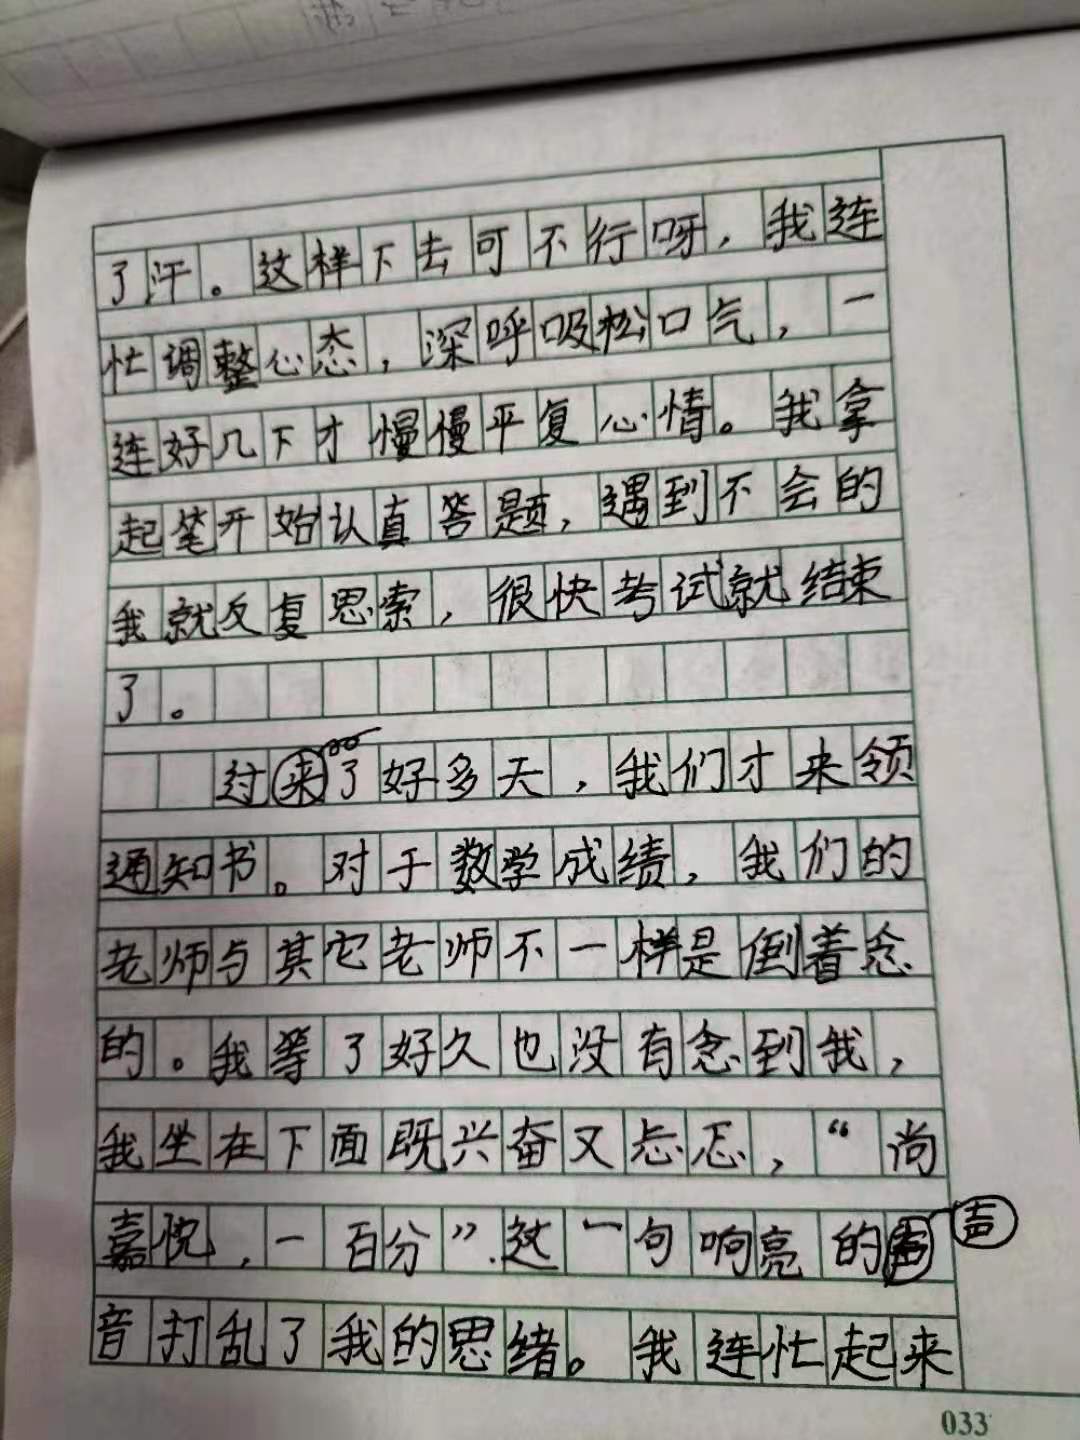 了汗。这样下去可不行呀，我连
忙调整心态，深呼吸松口气，一
连好几下才慢慢平复心情。我拿
起笔开始认真答题，遇到不会的
我就反复思索，很快考试就结束
了。
过了好多天，我们才来领
通知书。对于数学成绩，我们的
老师与其它老师不一样是倒着念
的。我等了好久也没有念到我，
我坐在下面既兴奋又忐忑，“尚
嘉悦，一百分”.这一句响亮的声
音打乱了我的思绪。我连忙起来
033